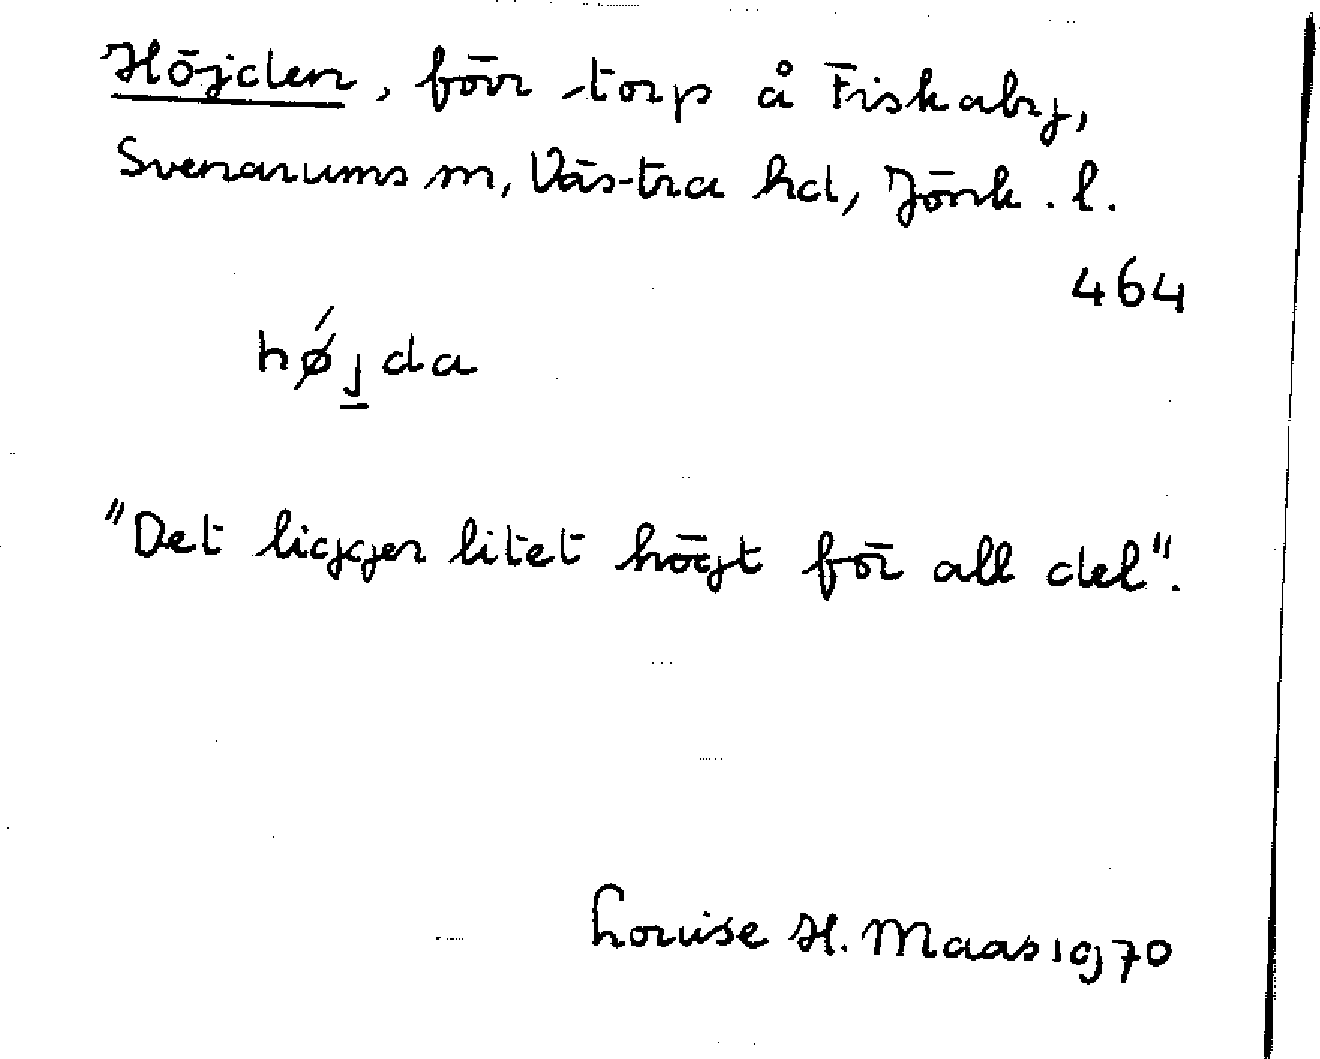 Höjden, förr torp å Fiskaby,
Svenarums sn, Västra hd, Jönk. l.
464
hǿj̱da
"Det ligger litet högt för all del".
Louise H. Maas 1970